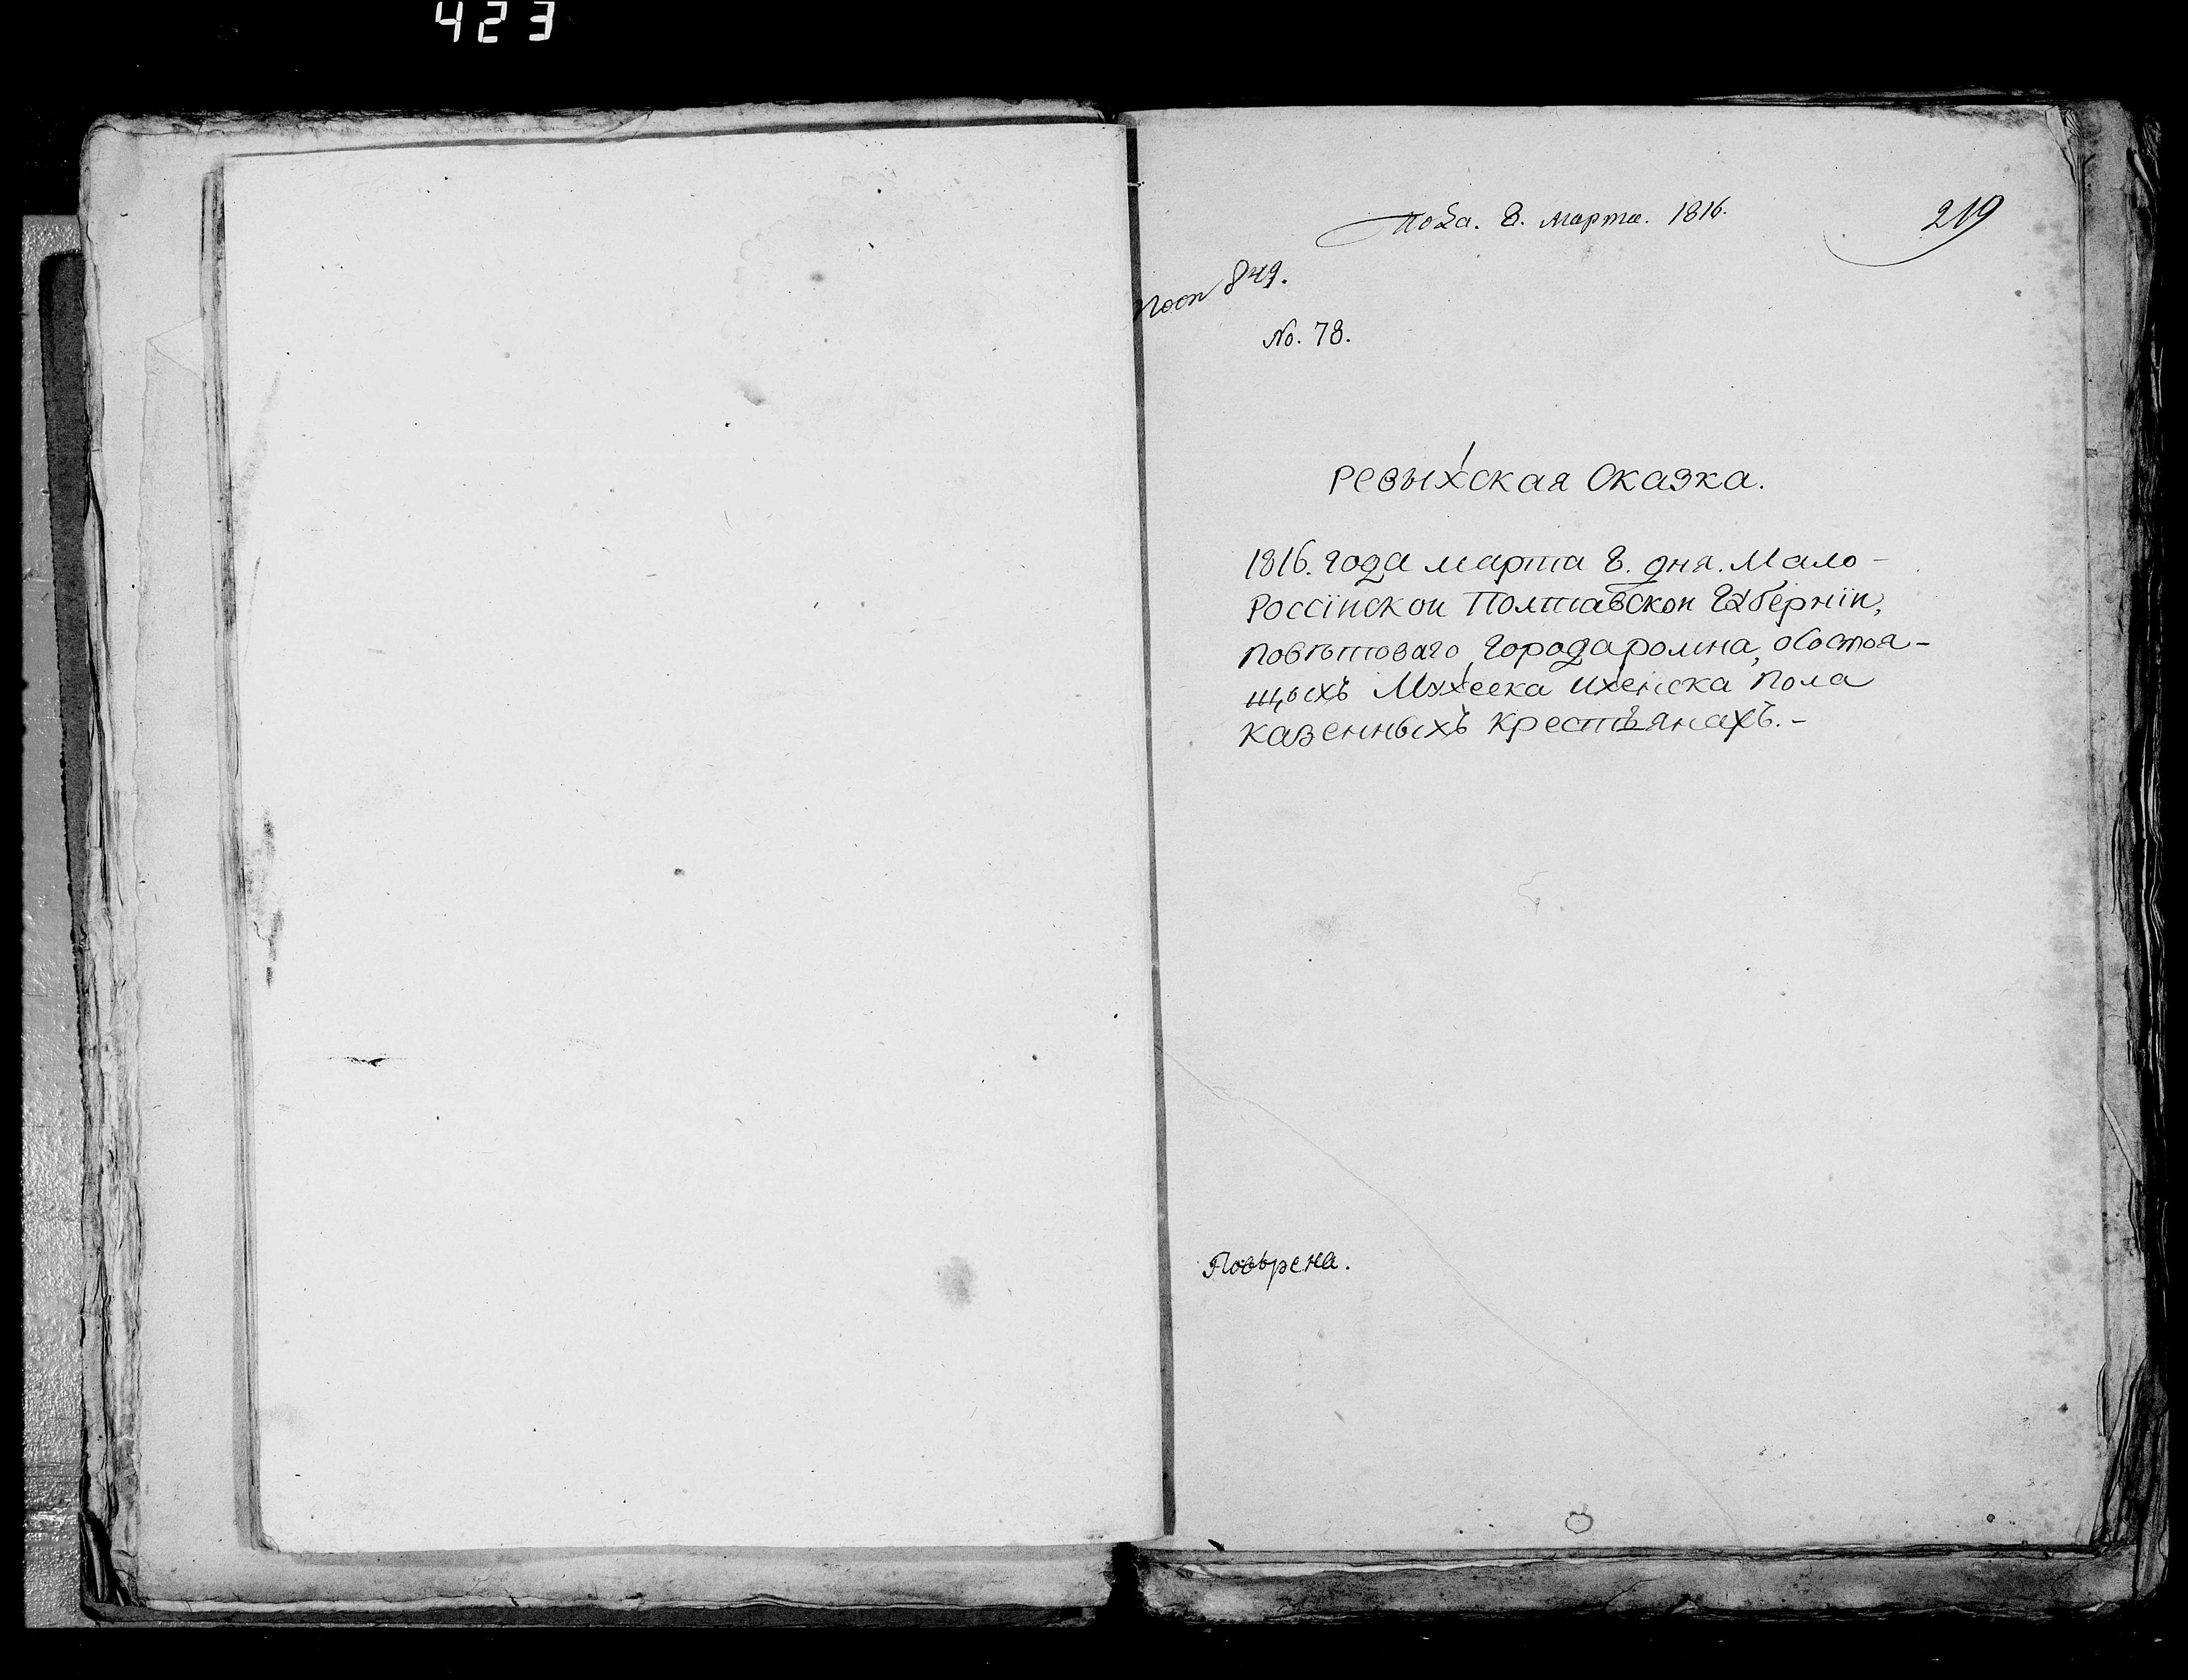 423
Пода. 8. марта. 1816.
219
Пост 849.
No. 78.
Ревыжская Сказка.
1816. года марта 8. дня. Мало-
Россїиской Полтавской Губернїи,
повѣтоваго города ромна, осостоя-
щыхъ Мужеска иженска пола
казенныхъ крестъянахъ.-
Повѣрена.